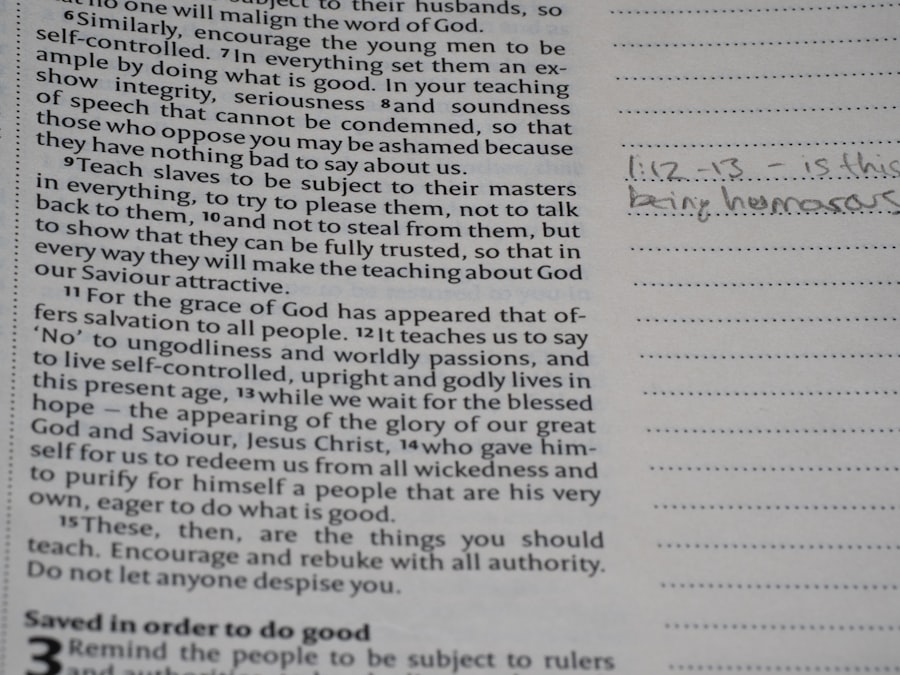 subject to their husbands, so
that no one will malign the word of God.
6 Similarly, encourage the young men to be
self-controlled. 7 In everything set them an ex-
ample by doing what is good. In your teaching
show integrity, seriousness 8 and soundness
of speech that cannot be condemned, so that
those who oppose you may be ashamed because
they have nothing bad to say about us.
9 Teach slaves to be subject to their masters
in everything, to try to please them, not to talk
back to them, 10 and not to steal from them, but
to show that they can be fully trusted, so that in
every way they will make the teaching about God
our Saviour attractive.
11 For the grace of God has appeared that of-
fers salvation to all people. 12 It teaches us to say
‘No’ to ungodliness and worldly passions, and
to live self-controlled, upright and godly lives in
this present age, 13 while we wait for the blessed
hope – the appearing of the glory of our great
God and Saviour, Jesus Christ, 14 who gave him-
self for us to redeem us from all wickedness and
to purify for himself a people that are his very
own, eager to do what is good.
15 These, then, are the things you should
teach. Encourage and rebuke with all authority.
Do not let anyone despise you.
Saved in order to do good
3 Remind the people to be subject to rulers
and
1:12-13 - is this
being